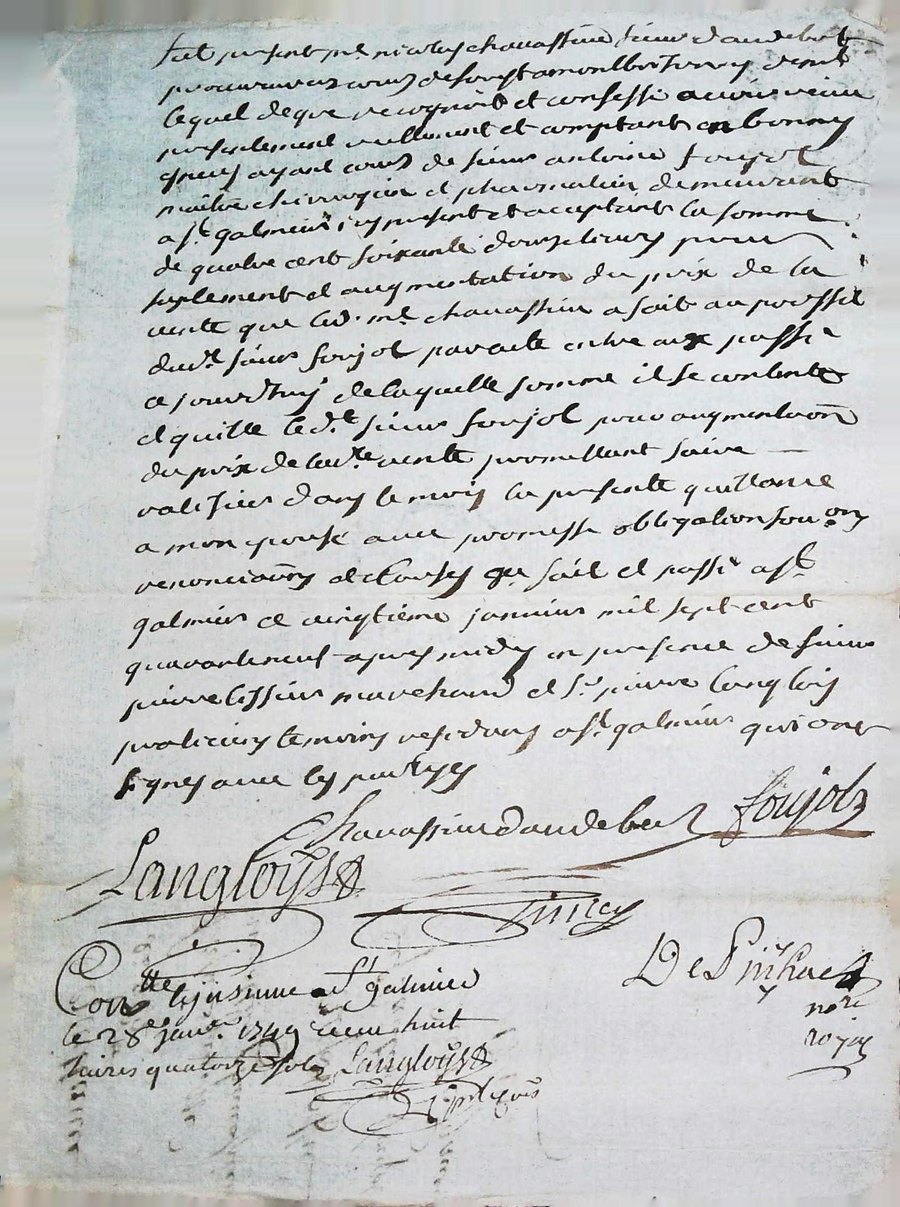 fut present mr nicolas chavassieu sieur daudebert
procureur ez cours de forest a montbrison
lequel de gre recognoit et confesse avoir receu
presentement reellement et comptant en bonnes
especes ayant cours de sieur antoine foujol
maitre chirurgien et pharmatien demeurant
a st galmier icy present et acceptant la somme
de quatre cent soixante douze livres pour
suplement et augmentation du prix de la
vente que led. mr chavassieu a fait au proffit
dudt sieur foujol par acte entre eux passé
ajourdhuy de laquelle somme il se contente
et quitte le dt sieur foujol pour augmentaon
du prix de ladte vente promettant faire
ratifier dans le mois la presente quittance
a mon epouse avec promesse obligation
renonciaons et clauses fait et passé a st
galmier ce vingtieme janvier mil sept cent
quaranteneuf apres midy en presence de sieur
pierre tissieur marchand et sr pierre langlois
praticiens temoins residans a st galmier qui ont
signes avec les partyes
Chavassieu daudebert foujols
Langloys
nore
royal
Contlle et insinue a St galmier
le 28e janer 1749 receu huit
livres quatorze sols Langloys